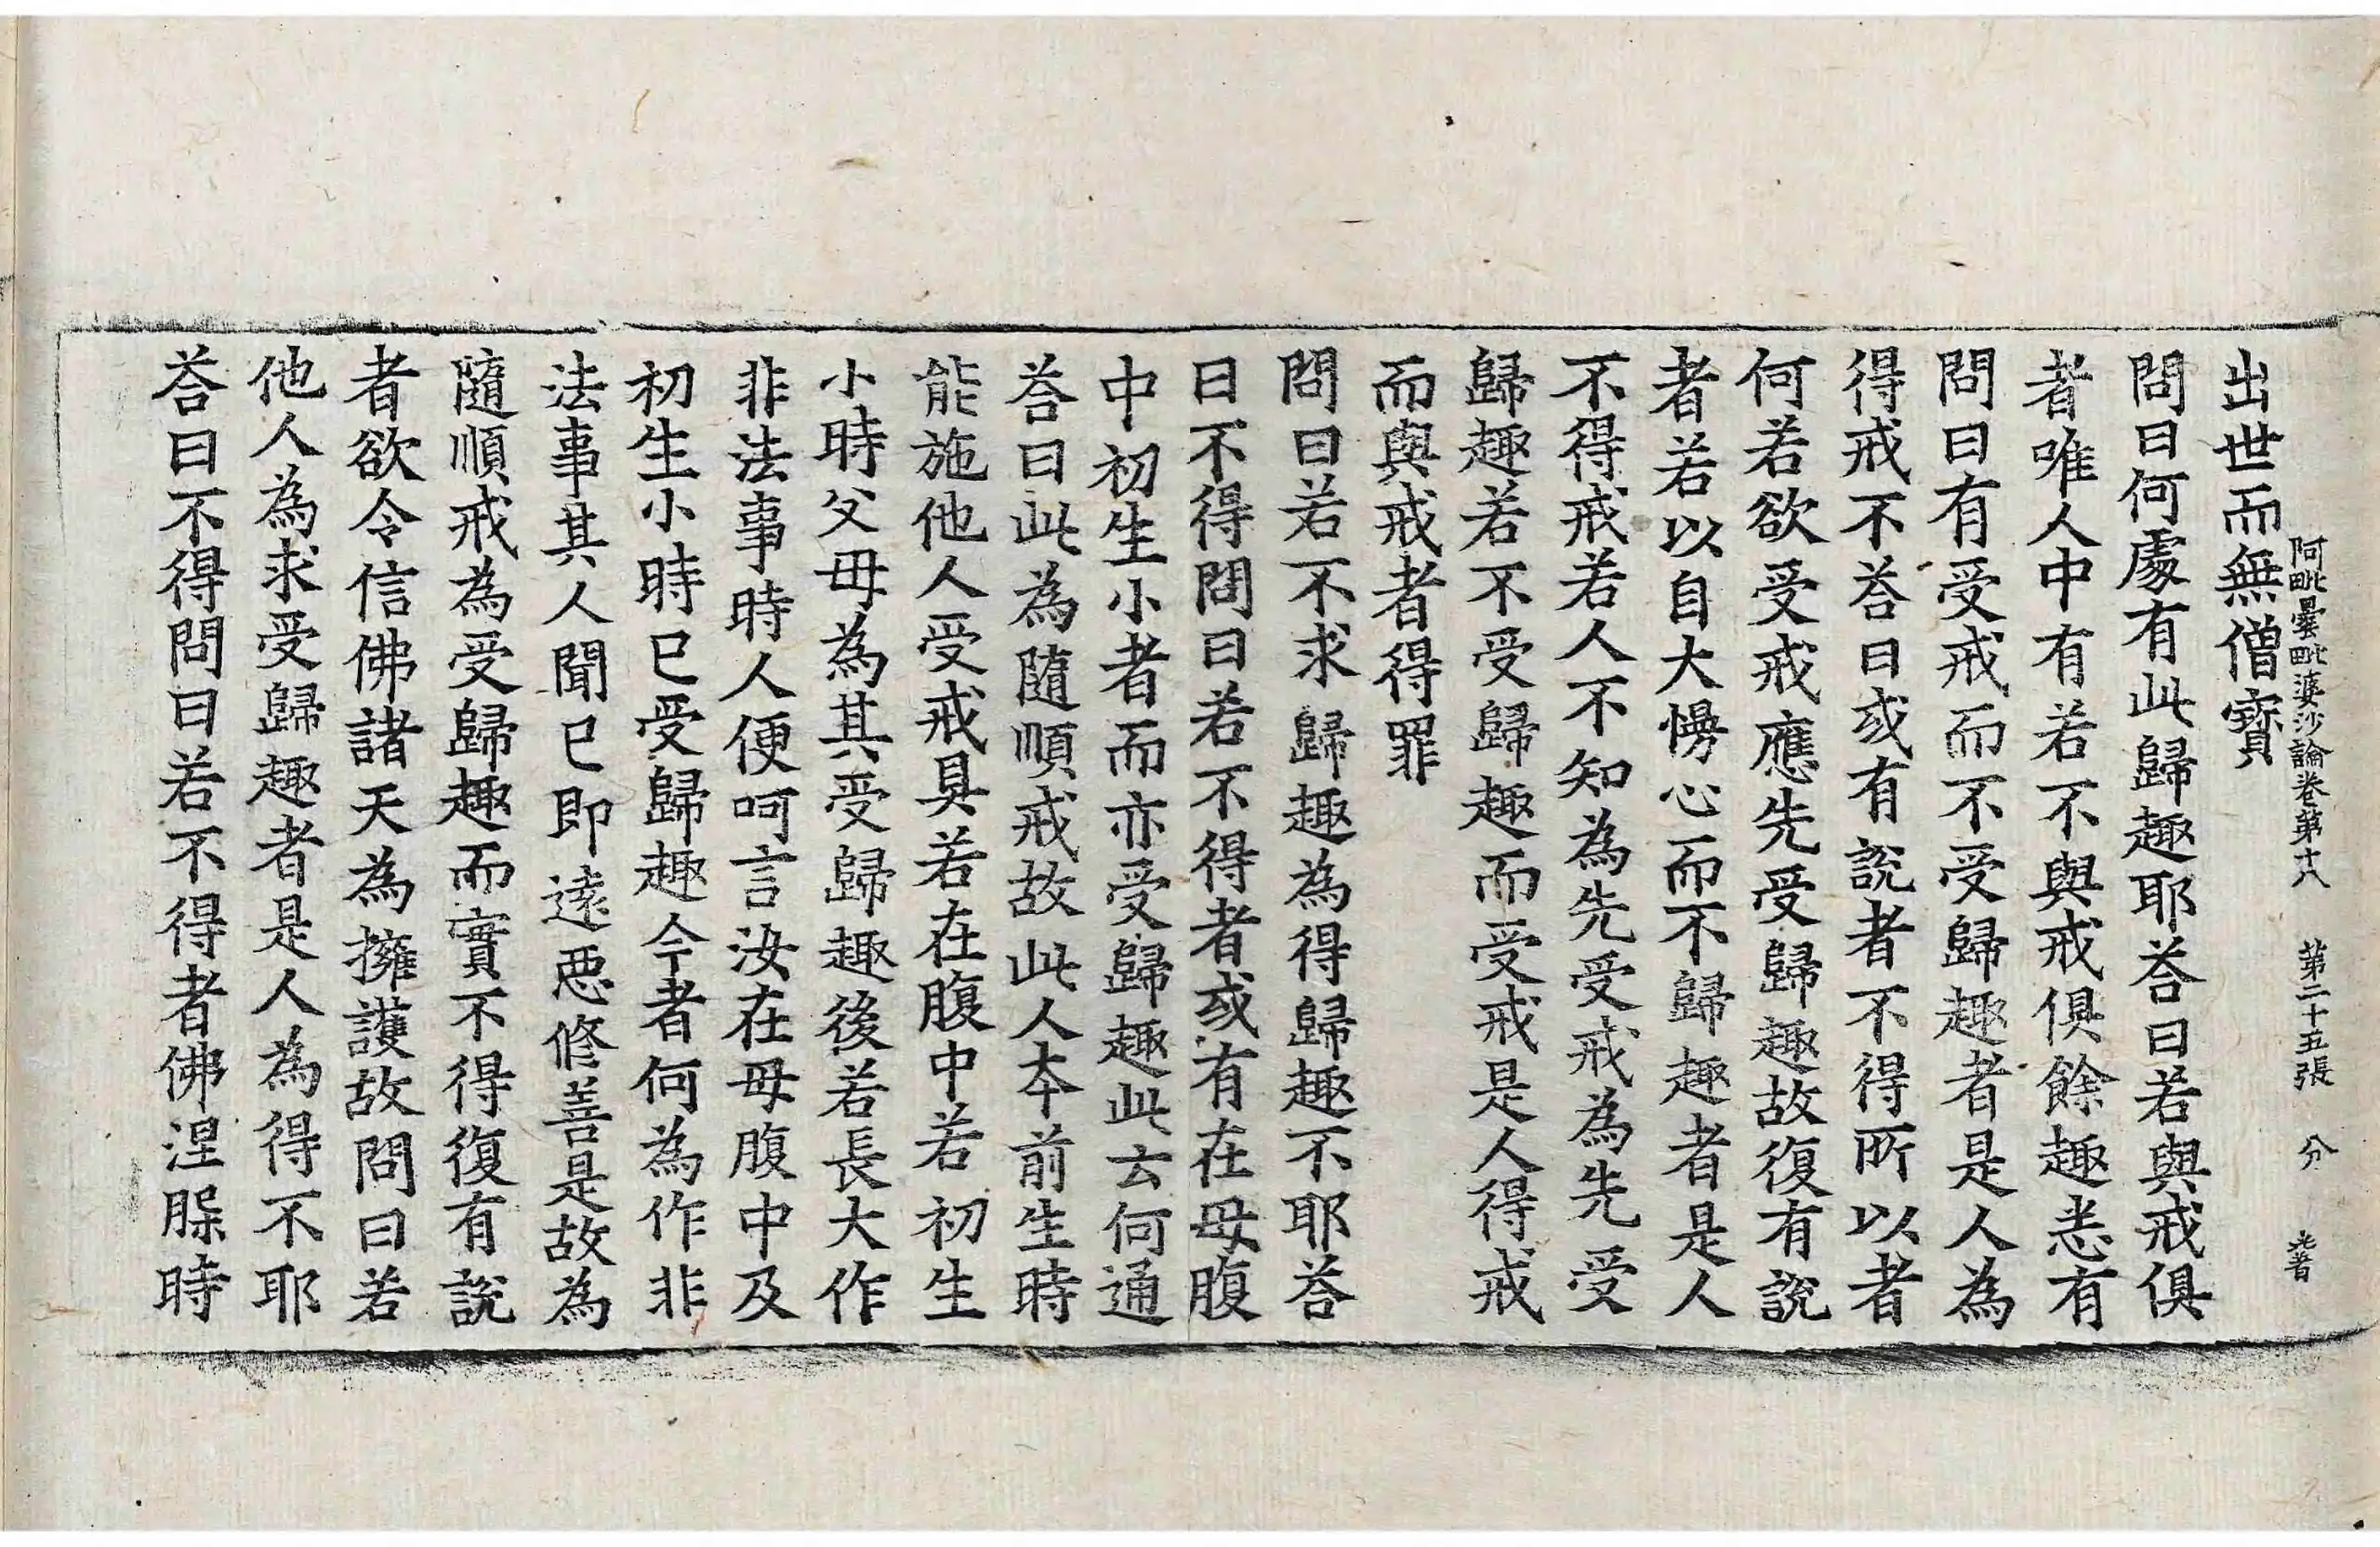 阿毗曇毗婆沙論卷第十八 第二十五張 分
出世而無僧寶
問曰何處有此歸趣耶荅曰若與戒俱
者唯人中有若不與戒俱餘趣悉有
問曰有受戒而不受歸趣者是人為
得戒不荅曰或有說者不得所以者
何若欲受戒應先受歸趣故復有說
者若以自大慢心而不歸趣者是人
不得戒若人不知為先受戒為先受
歸趣若不受歸趣而受戒是人得戒
而與戒者得罪
問曰若不求歸趣為得歸趣不耶荅
曰不得問曰若不得者或有在母腹
中初生小者而亦受歸趣此云何通
荅曰此為隨順戒故此人本前生時
能施他人受戒具若在腹中若初生
小時父母為其受歸趣後若長大作
非法事時人便呵言汝在母腹中及
初生小時已受歸趣今者何為作非
法事其人聞已即遠惡修善是故為
隨順戒為受歸趣而實不得復有說
者欲令信佛諸天為擁護故問曰若
他人為求受歸趣者是人為得不耶
荅曰不得問曰若不得者佛涅槃時